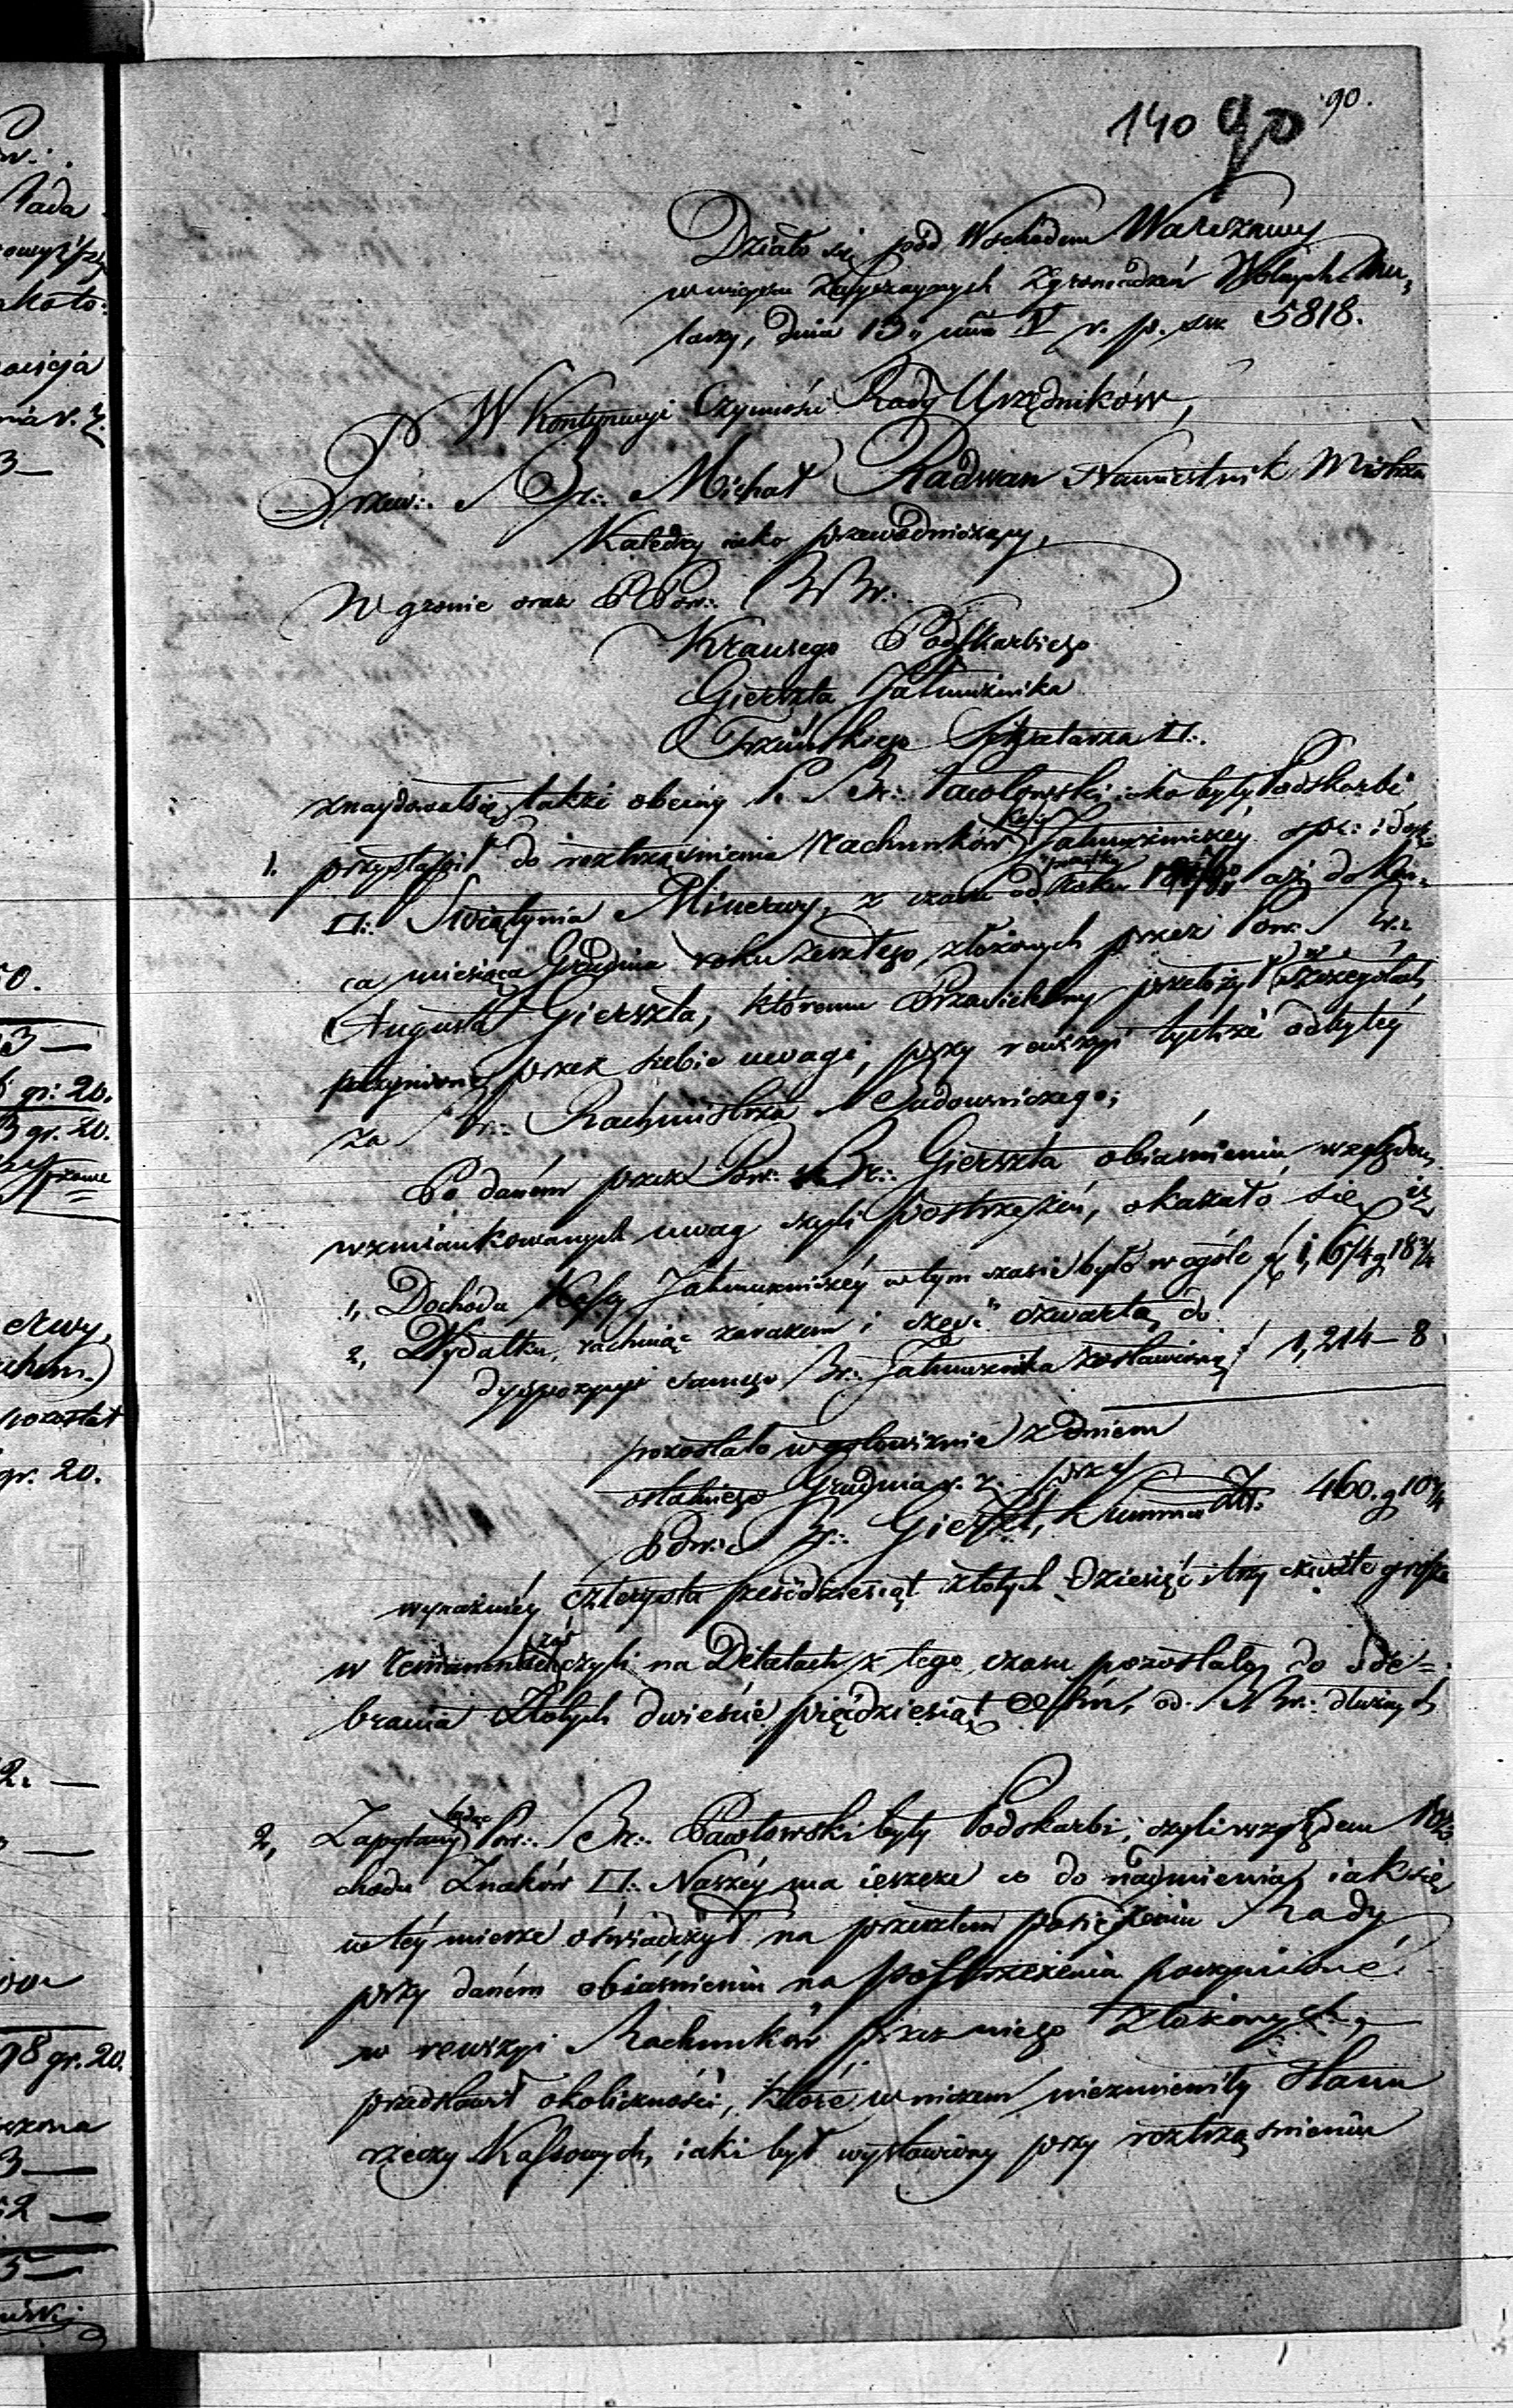 140 90 90.
Działo się pod Wschodem Warszawy
w mieyscu Zwyczaynych Zgromadzeń Wolnych Mu-
larzy, dnia 13. mca IV r. p. sw 5818.
W Kontynuacyi Czynności Rady Urzędników,
Przew:. Br:. Michał Radwan Namiestnik Mistrza
Katedry iako przewodniczący,
W gronie oraz PPow:. BBr:.
Krausego Podskarbiego
Gierszta Jałmużnika
Sekretarza □:.
znaydował się także obecny P. Br:. Pawłowski iako były Podskarbi
1. przystąpił do roztrząśnienia Rachunków Kassy Jałmużniczéy spr: i dosk:
□:. Swiątynia Minerwy, z czasu od początku Roku aż do koń-
ca miesiąca Grudnia roku zeszłego złożonych przez Pow:. Br:.
Augusta Gierszta, któremu Przewielebny przełożył w szczegółach
poczynione przez siebie uwagi, przy rewizyi tychże odbytéy
za Br:. Rachmistrza Budowniczego;
Po daném przez Pow:. Br:. Gierszta obiaśnieniu względem
wzmiankowanych uwag czyli postrzeżeń, okazało się iż
1, Dochodu Kassy Jałmużniczéy w tym czasie było w ogóle zł 1,674 g 18¾
2, Wydatku, rachuiąc zarazem i część czwartą do
dyspozycyi samego Br:. Jałmużnika zostawioną 1,214 – 8
pozostało w gotowiznie z dniem
ostatniego Grudnia r. z. przy
Pow:. Br:. Gierszt, Summa Zł: 460. g 10¾
wyraźniéy czterysta sześćdziesiąt złotych dziesięć i trzy czwarte grosze
w remanentach zaś czyli na Detatach z tego czasu pozostało do ode-
brania Złotych dwieście pięćdziesiąt od Br:. dłużnych
2, Zapytany będąc Pow:. Br:. Pawłowski były Podskarbi, czyli względem Roz-
chodu Znaków □:. Naszéy ma ieszcze co do nadmienienia, iak się
w téy mierze oświadczył na przeszłem posiedzeniu Rady
przy daném obiaśnieniu na postrzeżenia poczynioné
w rewizyi Rachunków przez niego złożonych,
przedstawił okoliczności, które w niczem niezmieniły stanu
rzeczy Kassowych, iaki był wystawiony przy roztrząśnieniu